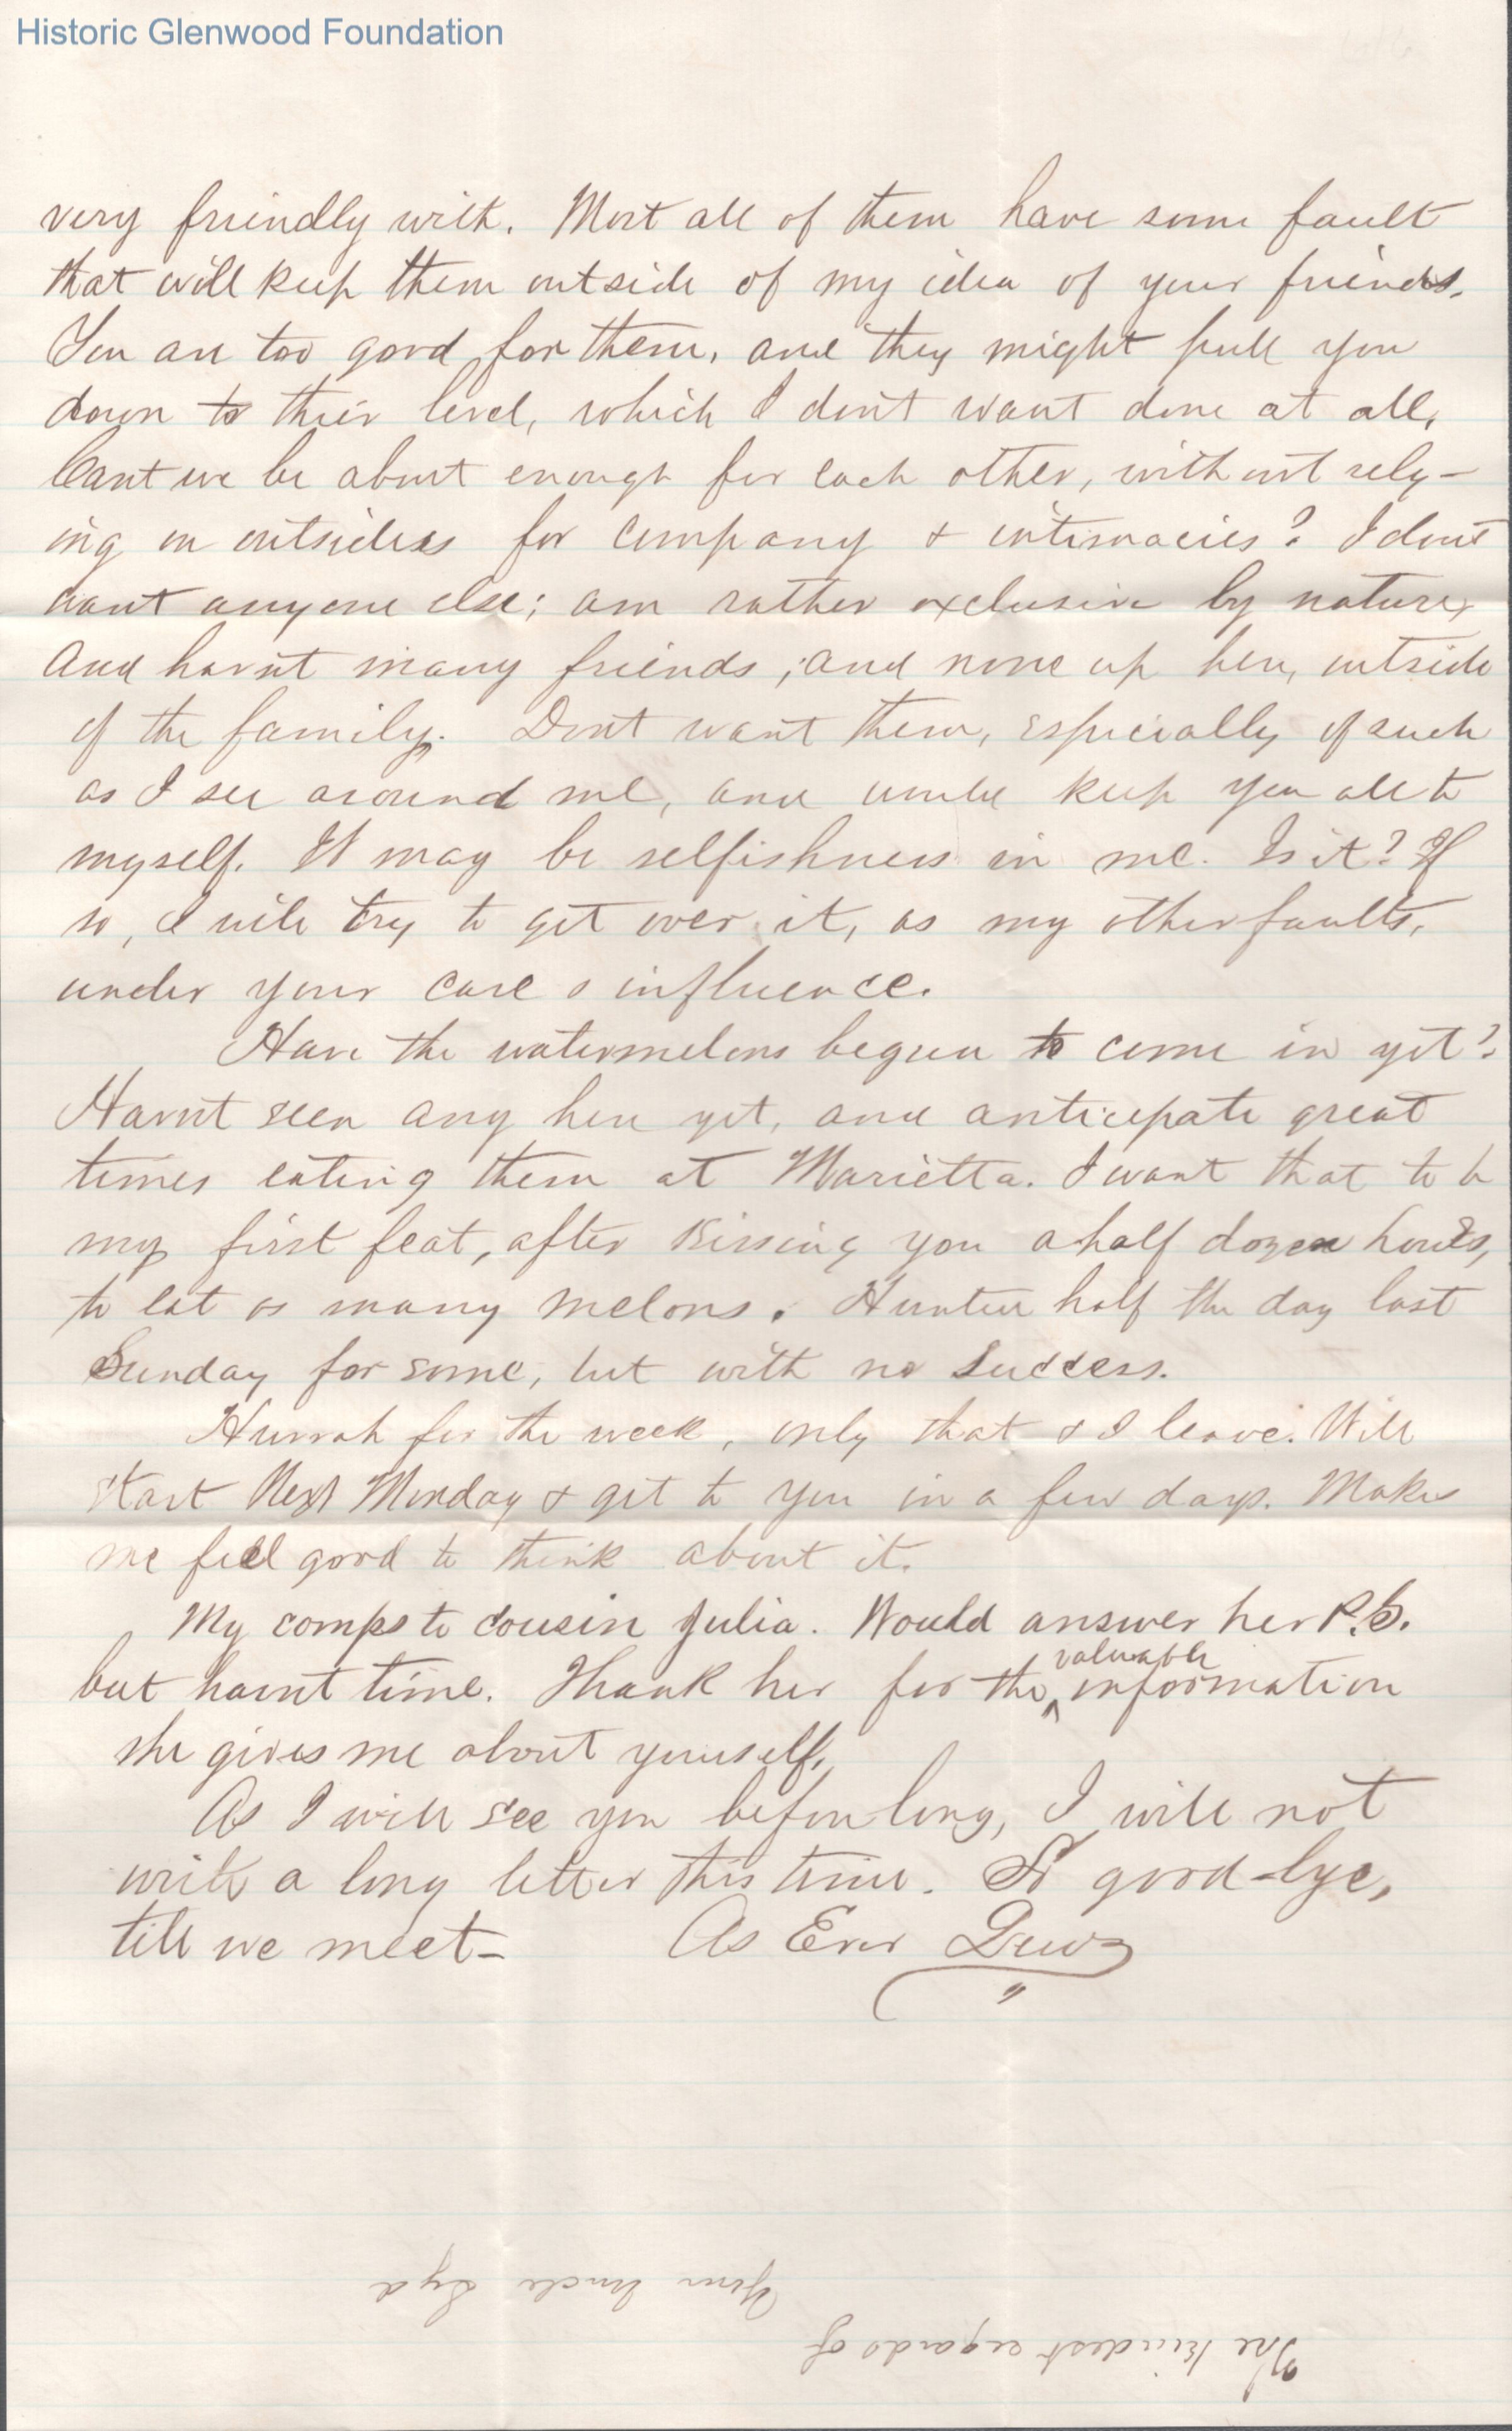 Historic Glenwood Foundation
very friendly with. Most all of them have some fault
that will keep them outside of my idea of your friends.
You are too good for them, and they might pull you
down to their level, which I dont want done at all.
Cant we be about enough for each other, without rely-
ing on outsiders for company & intimacies? I dont
want anyone else; am rather exclusive by nature,
and havnt many friends, and none up here, outside
of the family. Dont want them, especially of such
as I see around me, and would keep you all to
myself. It may be selfishness in me. Is it? If
so, I will try to get over it, as my other faults,
under your care & influence.
Have the watermelons begun to come in yet?
Havnt seen any here yet, and anticipate great
times eating them at Marietta. I want that to be
my first feat, after kissing you a half dozen hours,
to eat as many melons. Hunted half the day last
Sunday for some, but with no success.
Hurrah for the week, only that & I leave. Will
start Next Monday & get to you in a few days. Makes
me feel good to think about it.
My comps to cousin Julia. Would answer her P.S.
but havnt time. Thank her for the valuable information
she gives me about yourself.
As I will see you before long, I will not
write a long letter this time. So good-bye,
till we meet- As Ever Dew
The kindest regards of
Your Uncle Syd